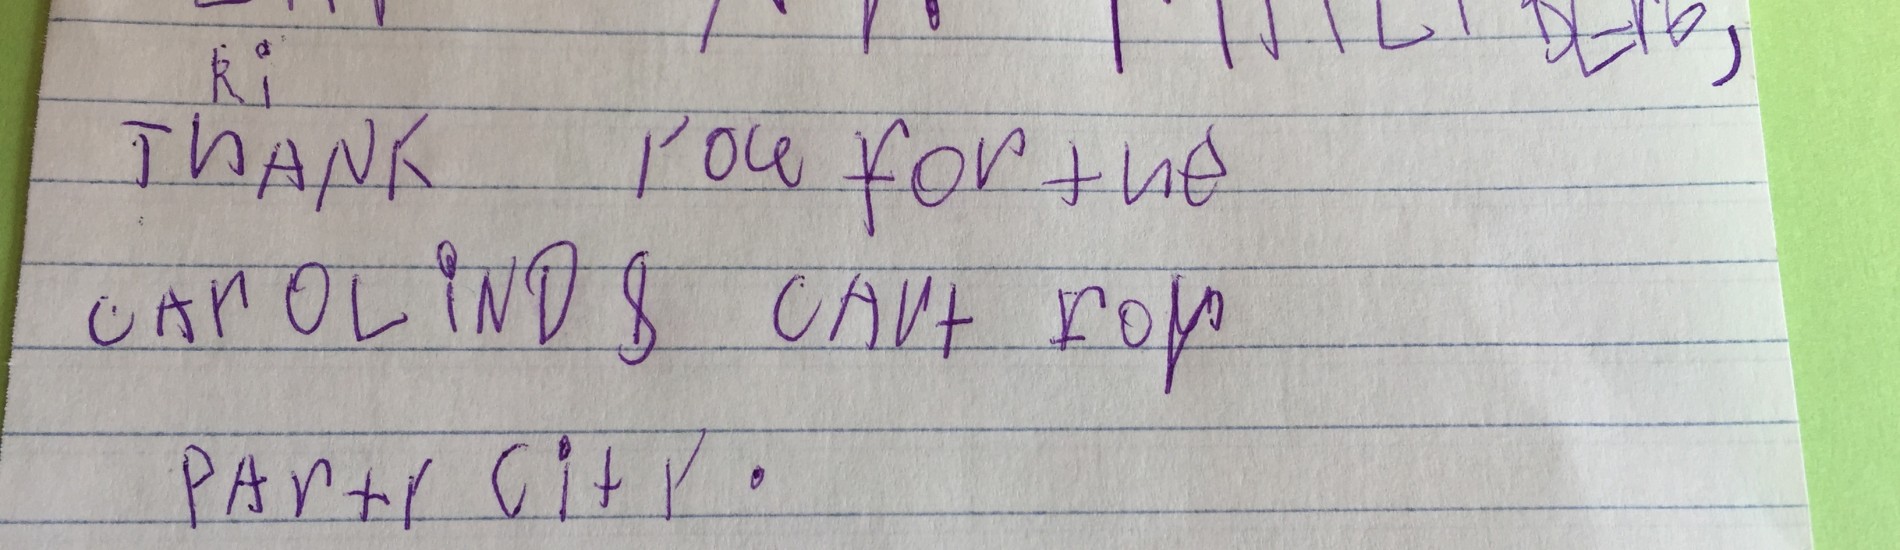 Ri
THANK YOU FOR the
CAROLINDS CARt FOR
PARty City.